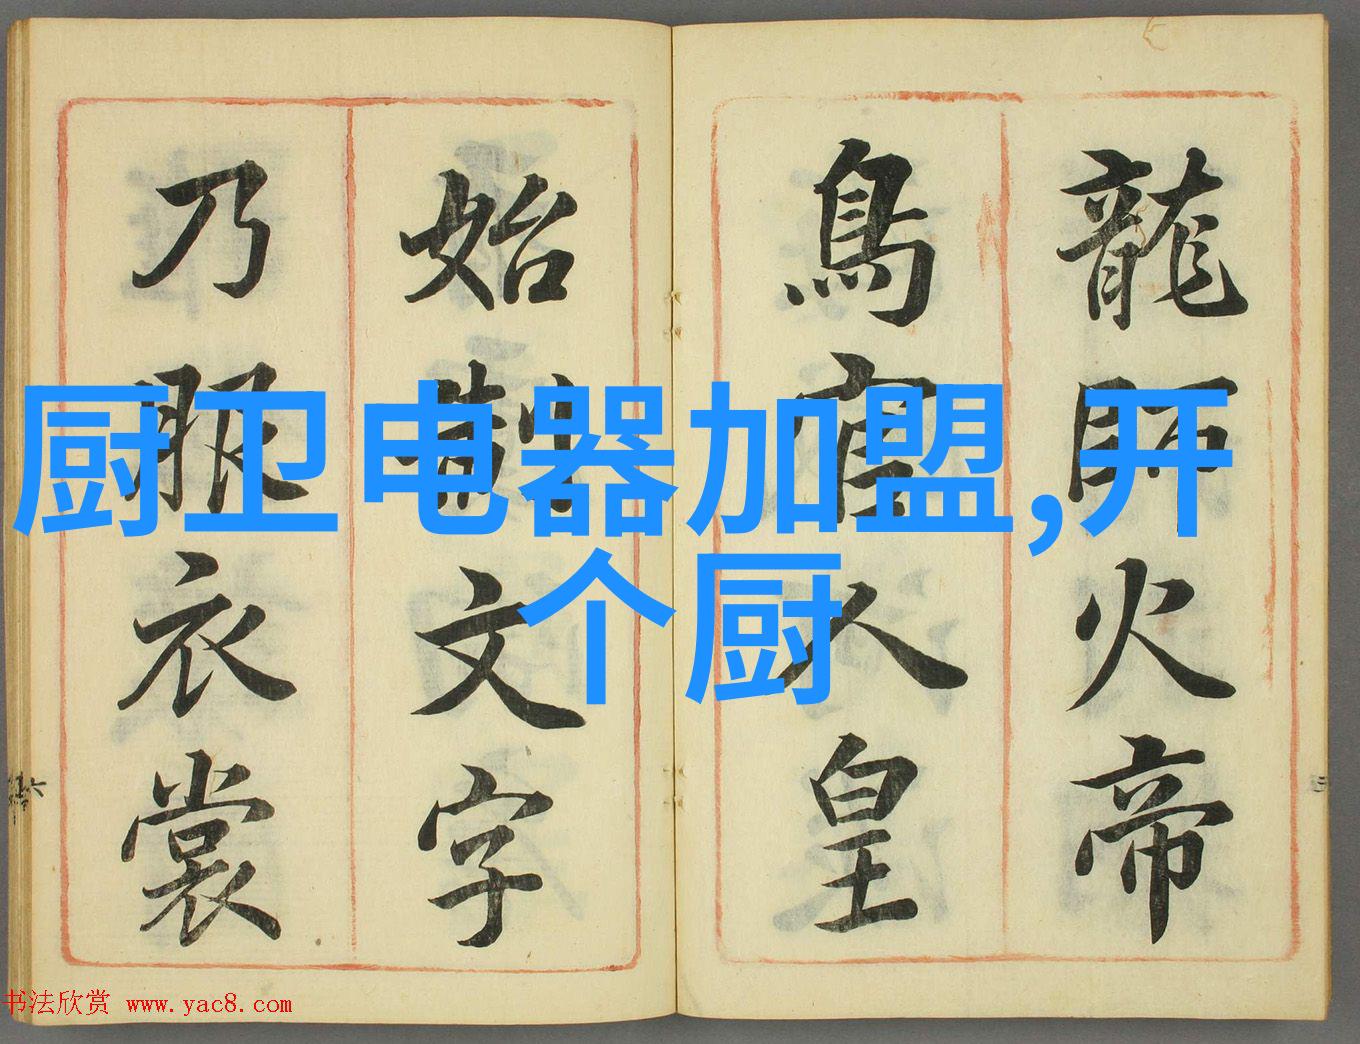 厨卫电器加盟,开
个厨
龍師火帝
鳥官人皇
始制文字
乃服衣裳
书法欣赏 www.yac8.com